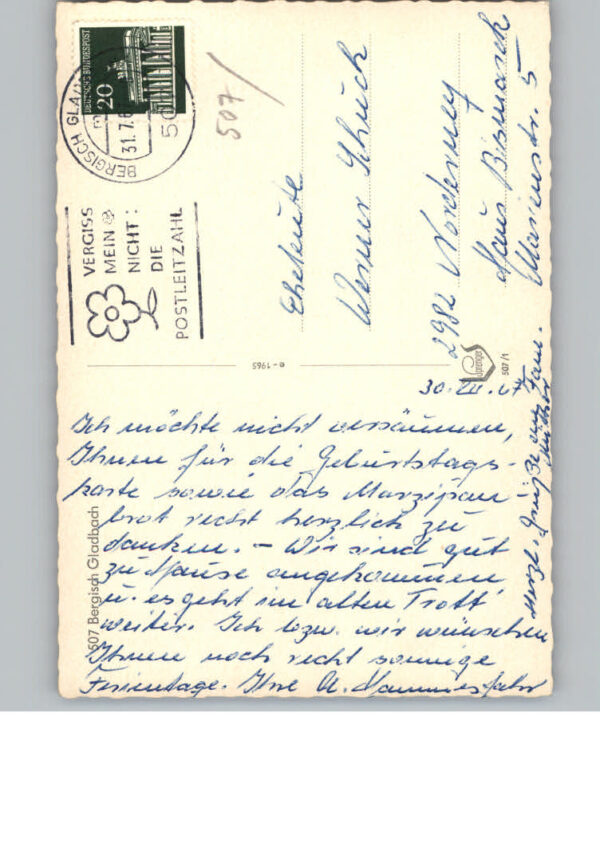 30. VII. 67
Ich möchte nicht versäumen,
Ihnen für die Geburtstags-
karte sowie das Marzipan-
brot recht herzlich zu
danken. – Wir sind gut
zu Hause angekommen
u. es geht im alten Trott
weiter. Ich bzw. wir wünschen
Ihnen noch recht sonnige
Ferientage. Ihre A. Hammesfahr
Herzl. Grüße an Fam.
507 Bergisch Gladbach
e - 1965
507/1
DEUTSCHE BUNDESPOST
20
BERGISCH GLA
31.7.6
VERGISS
MEIN
NICHT:
DIE
POSTLEITZAHL
507/
Eheleute
Werner Schuch
2982 Norderney
Haus Bismarck
Marienstr. 5